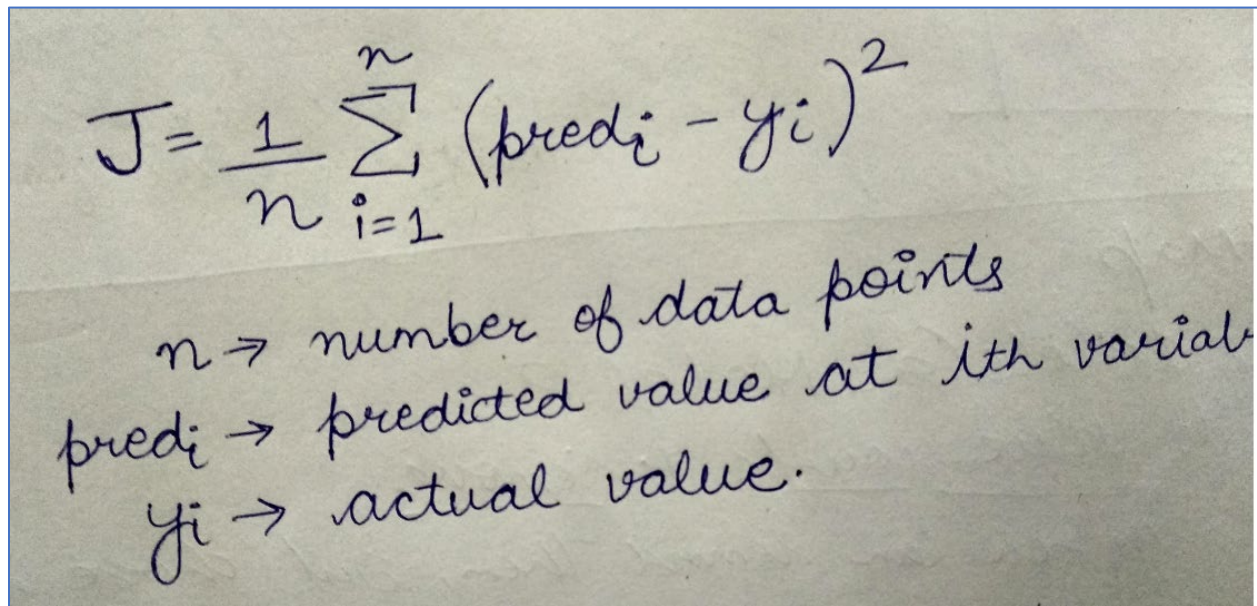 J = 1/n ∑ⁿᵢ₌₁ (predᵢ - yᵢ)²
n → number of data points
predᵢ → predicted value at ith variab
yᵢ → actual value.